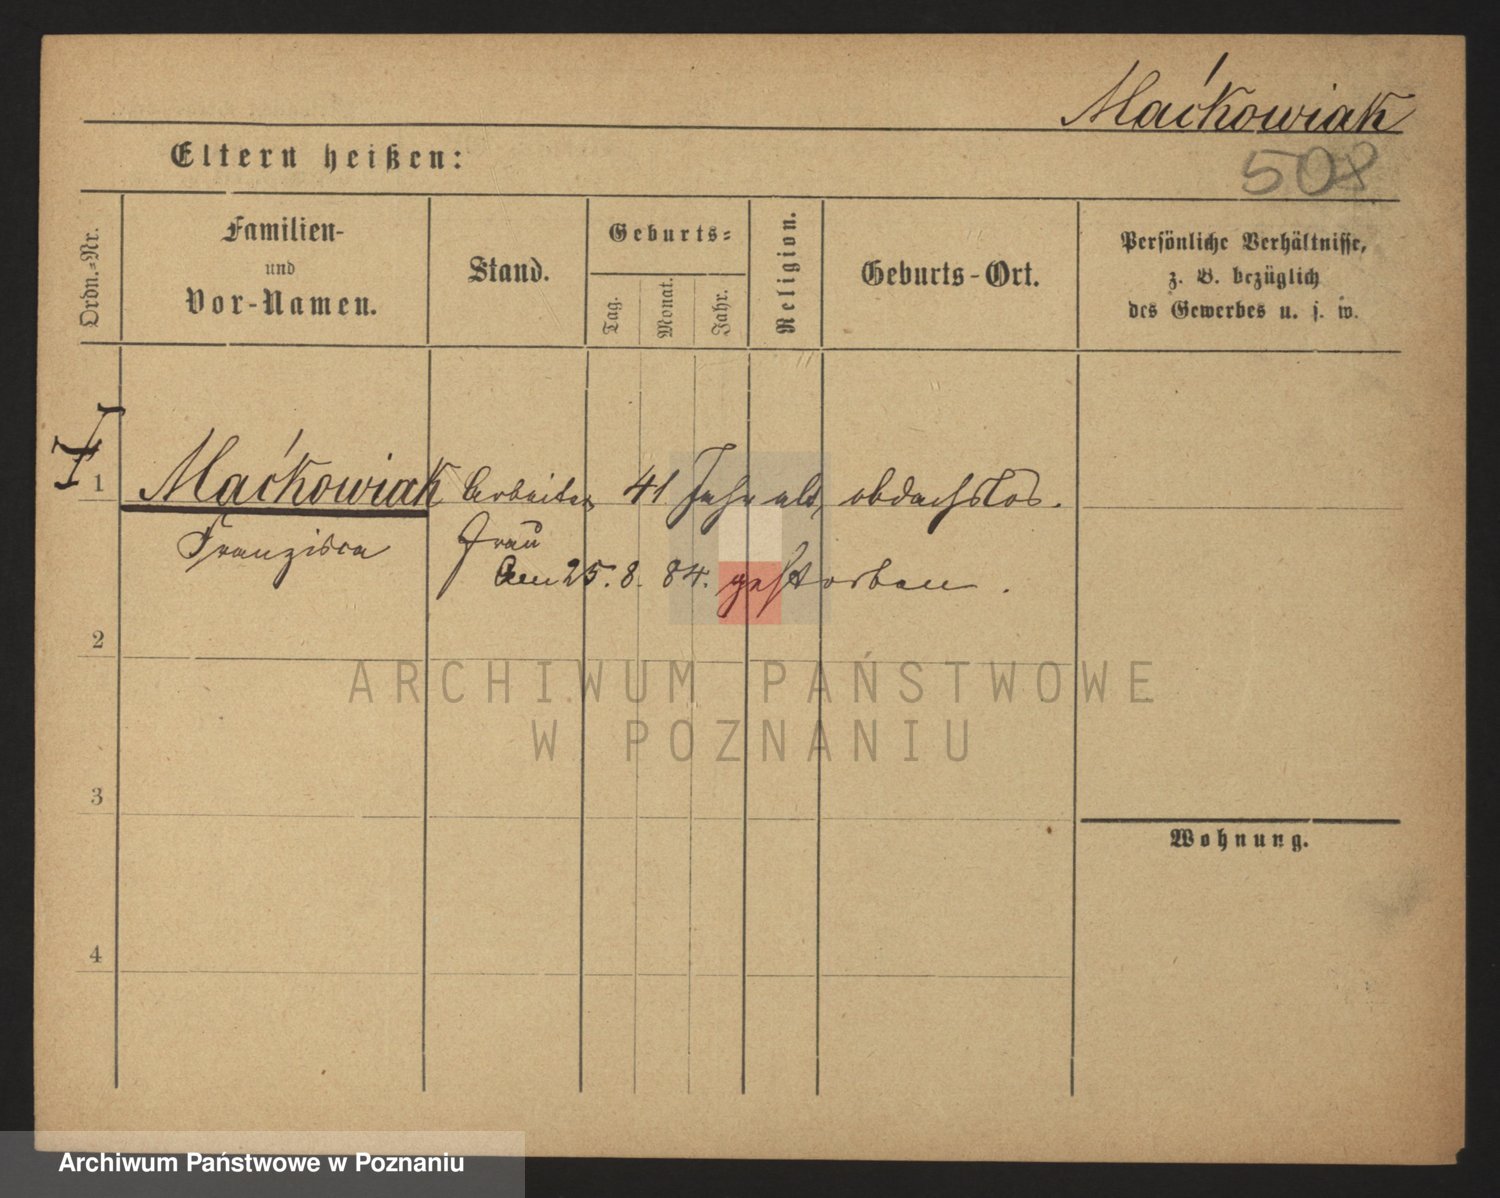 Maćkowiak
Eltern heißen:
508
Ordn.-Nr.
Familien-
und
Vor-Namen.
Stand.
Geburts-
Tag.
Monat.
Jahr.
Religion.
Geburts-Ort.
Persönliche Verhältnisse,
z. B. bezüglich
des Gewerbes u. s. w.
1 Maćkowiak Arbeiter 41 Jahr alt, obdachslos.
Franziska frau
Am 25. 8. 84. gestorben.
2
ARCHIWUM PAŃSTWOWE
W POZNANIU
3
Wohnung.
4
Archiwum Państwowe w Poznaniu